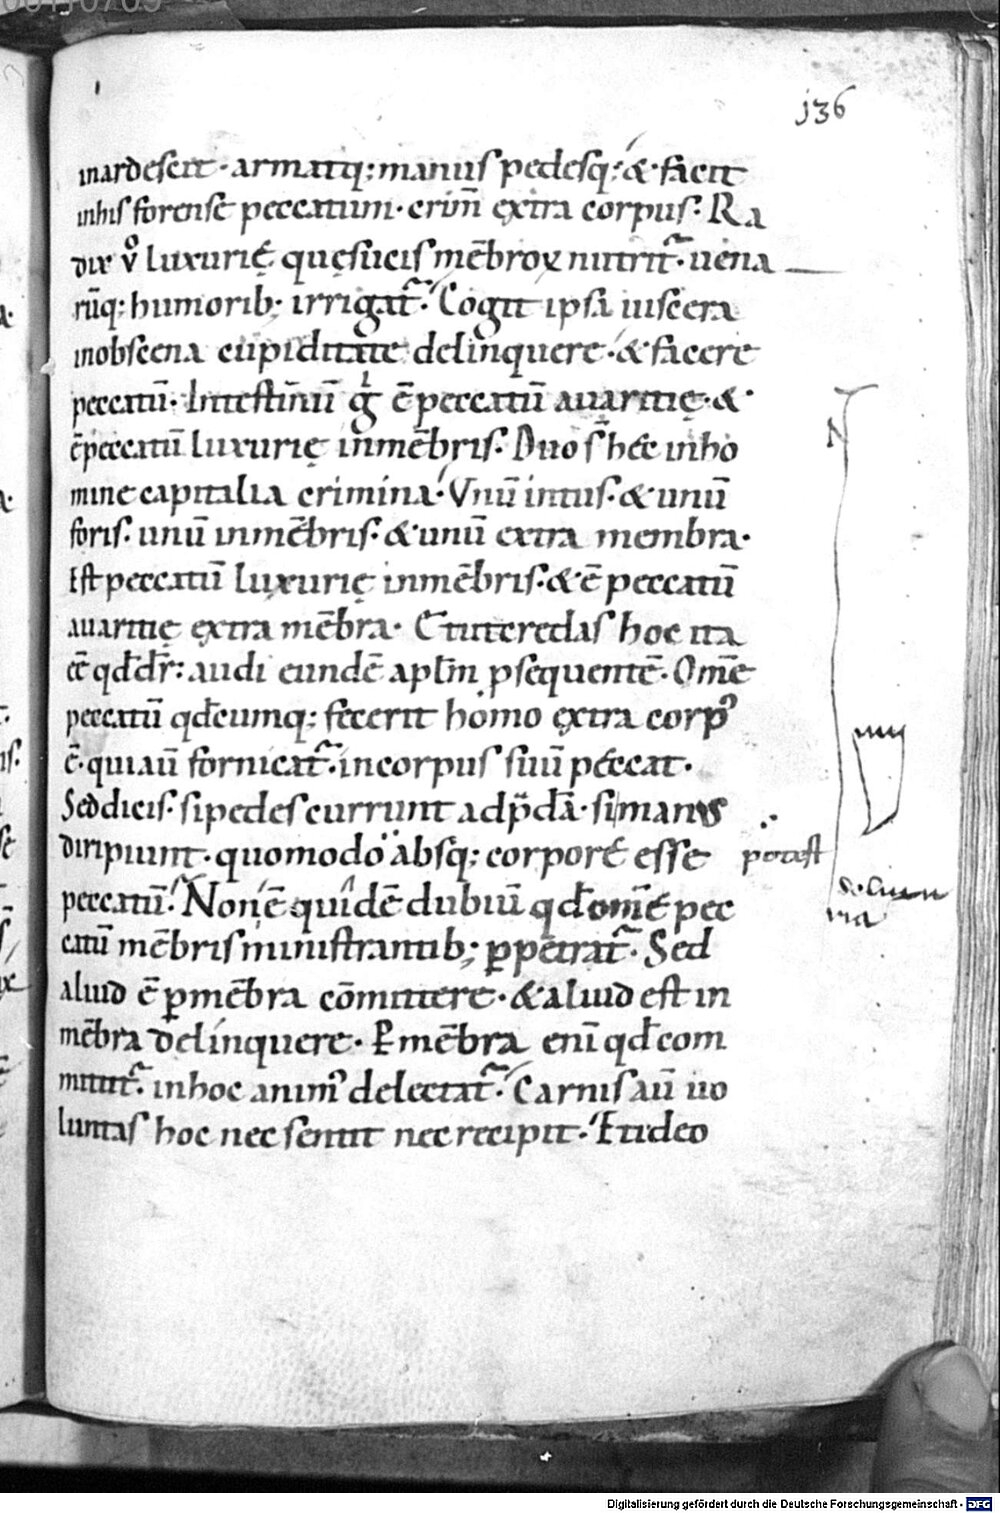 136
inardescit · armatq; manus pedesq; & facit
inhis forense peccatum · crim̄ extra corpus · Ra
dix v̊ luxurię quę sucis mēbroꝝ nutrit᷒ · uena
rūq; humorib; irrigat᷒ · Cogit ipsa uiscera
inobscena cupiditate delinquere · & facere
peccatū · Intestinū gͥ ē peccatū auaritię · &
ē peccatū luxurię inmēbris · Duo s̄ hęc inho
mine capitalia crimina · Vnū intus · & unū
foris · unū inmēbris · & unū extra membra ·
Est peccatū luxurię inmēbris · & ē peccatū
auaritię extra mēbra · Et ut credas hoc ita
eē qđ dr̄ : audi eundē aplm̄ ꝓsequentē · Om̄e
peccatū qđcumq; fecerit homo extra corpꝰ
ē · qui aū fornicat᷒ · incorpus suū peccat ·
Sed dicis · si pedes currunt adp̄dā · si manus
diripiunt · quomodo absq; corpore esse potest
peccatū · Non ē quidē dubiū qđ om̄e pec
catū mēbris ministrantib; ꝑpetrat᷒ · Sed
aliud ē ꝑ mēbra cōmittere · & aliud est in
mēbra delinquere · Ꝑ mēbra enī qđ com
mittit᷒ · inhoc animꝰ delectat᷒ · Carnis aū uo
luntas hoc nec sentit nec recipit · Et ideo
Digitalisierung gefördert durch die Deutsche Forschungsgemeinschaft - DFG